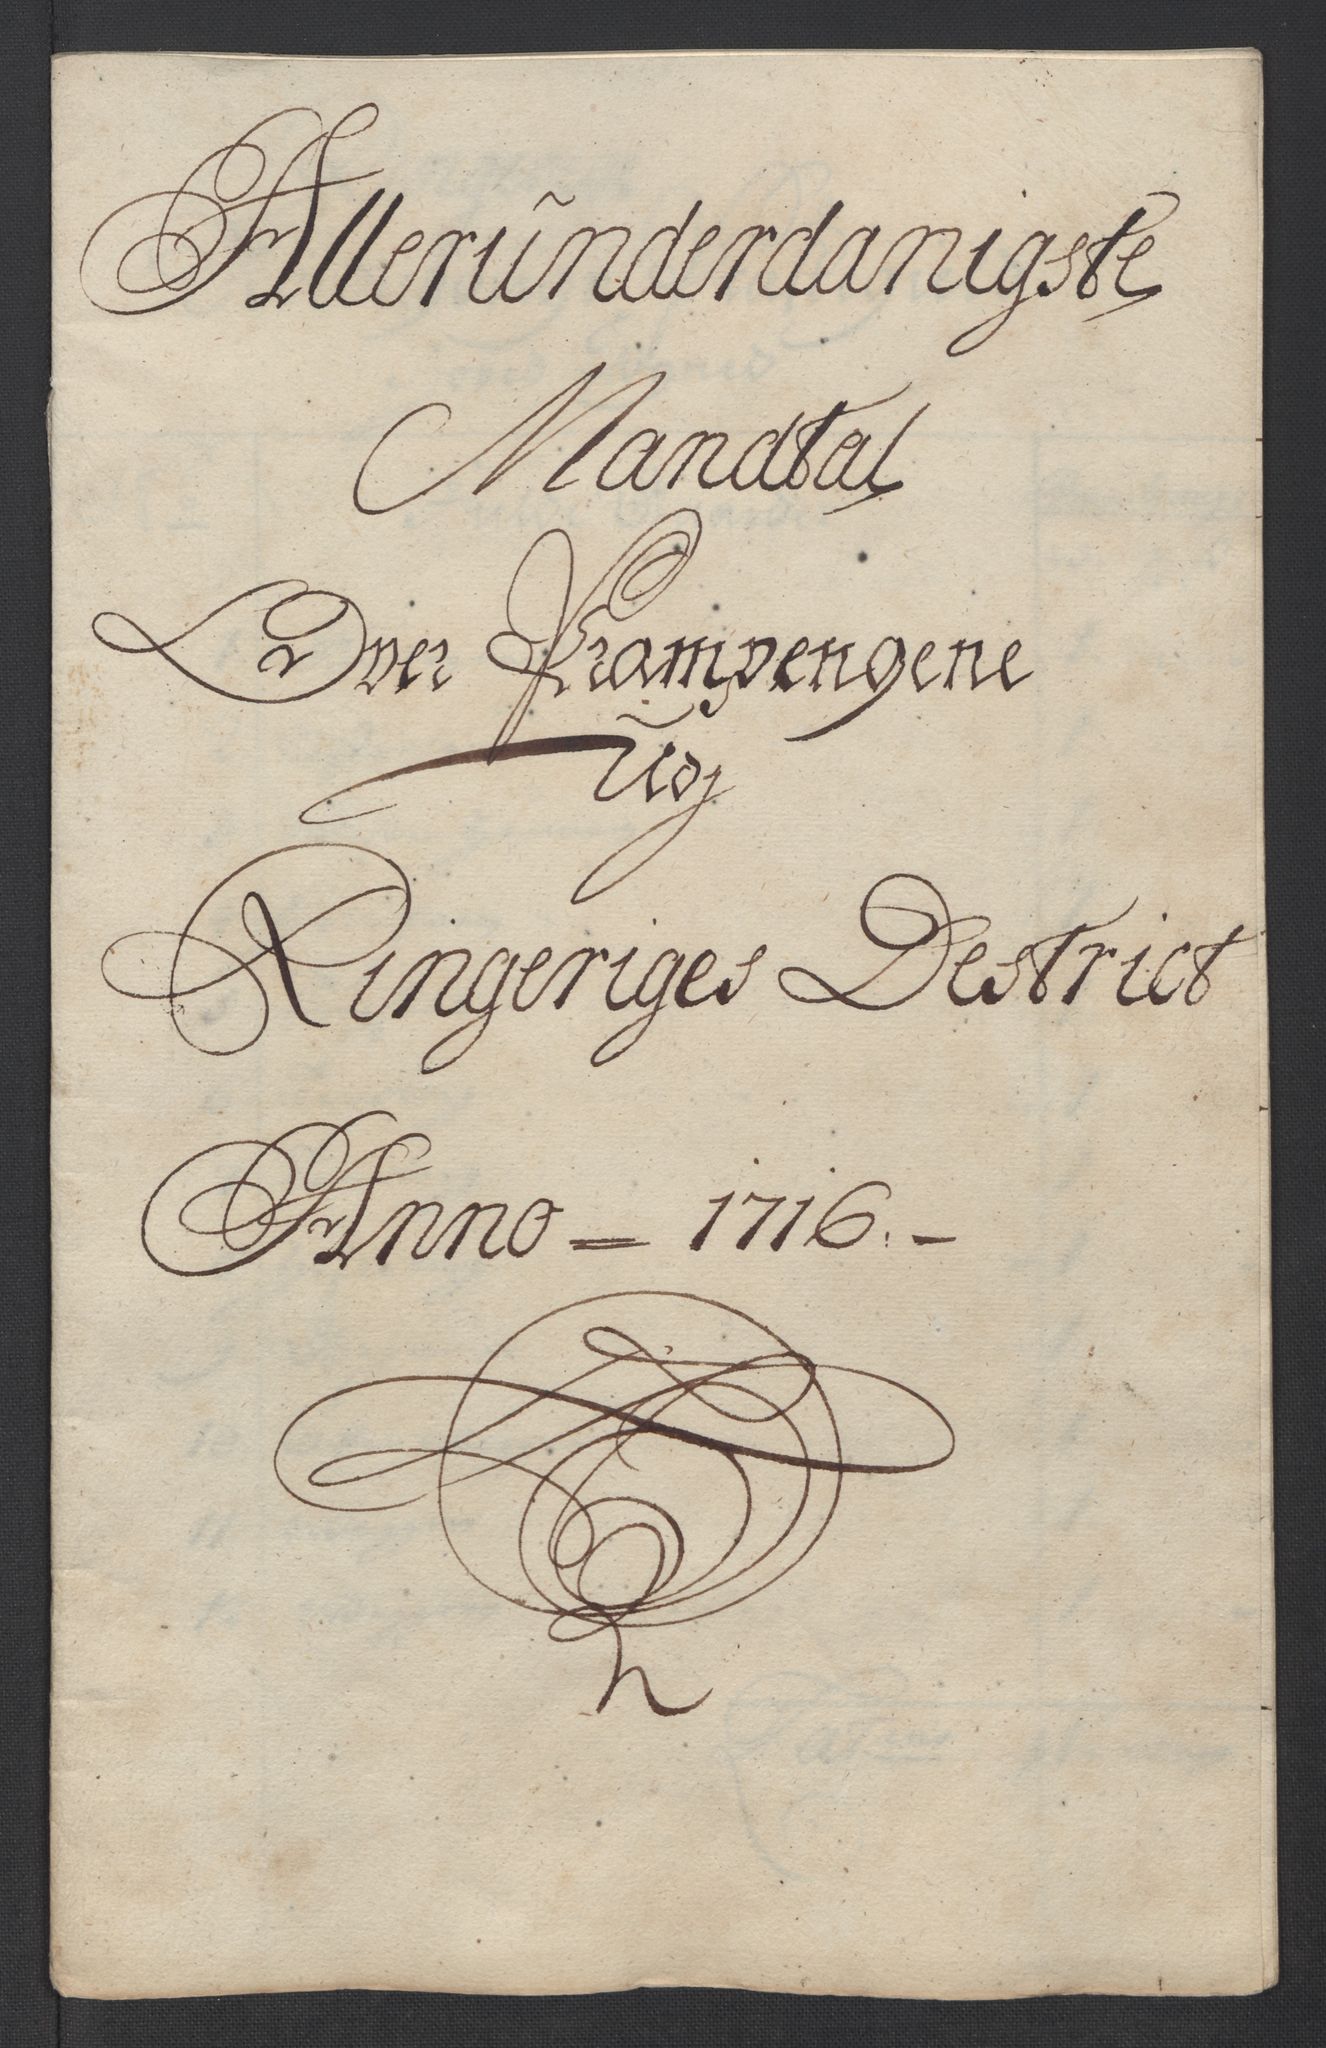 Allerũnderdanigste
Mandtal
Over Krampengene
Udj
Ringeriges Destrict
Anno = 1716. -